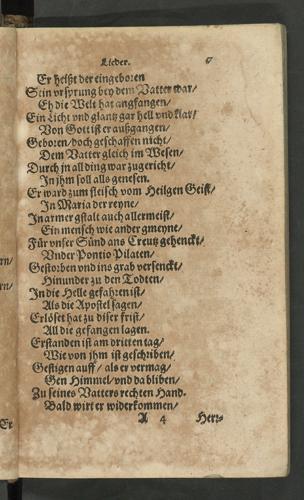 Lieder.
Er heißt der eingeboren
Sein vrsprung bey dem Vatter war/
Eh die Welt hat angfangen/
Ein Licht vnd glantz gar hell vnd klar/
Von Gott ist er außgangen/
Geboren/ doch geschaffen nicht/
Dem Vatter gleich im Wesen/
Durch jn all ding war zugericht/
In jhm soll als genesen.
Er ward zum fleisch vom Heilgen Geist/
In Maria der reyne/
In armer gstalt auch allermeist/
Ein mensch wie ander gmeyne/
Für vnser Sünd ans Creutz gehenckt/
Vnder Pontio Pilaten/
Gestorben vnd ins grab versenckt/
Hinunder zu den Todten/
In die Helle gefahren ist/
Als die Apostel sagen/
Erlöset hat zu diser frist/
All die gefangen lagen.
Erstanden ist am dritten tag/
Wie von jhm ist geschriben/
Gestigen auff/ als er vermag/
Gen Himmel/ vnd da bliben/
Zu seines Vatters rechten Hand.
Bald wirt er widerkommen/
A 4 Her:
rn/
rn/
Er